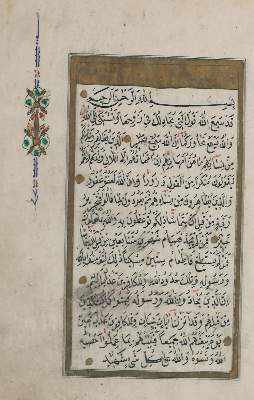 بسم الله الرحمن الرحيم
قد سمع الله قول التي تجادلك في زوجها وتشتكي الى الله
والله يسمع تحاوركما ان الله سميع بصير الذين يظاهرون منكم
من نسائهم ما هن امهاتهم ان امهاتهم الا اللائي ولدنهم وانهم
ليقولون منكرا من القول وزورا وان الله لعفو غفور
والذين يظاهرون من نسائهم ثم يعودون لما قالوا فتحرير
رقبة من قبل ان يتماسا ذلكم توعظون به والله بما تعملون
خبير فمن لم يجد فصيام شهرين متتابعين من قبل ان يتماسا
فمن لم يستطع فاطعام ستين مسكينا ذلك لتؤمنوا بالله
ورسوله وتلك حدود الله وللكافرين عذاب اليم
ان الذين يحادون الله ورسوله كبتوا كما كبت الذين
من قبلهم وقد انزلنا ايات بينات وللكافرين عذاب مهين
يوم يبعثهم الله جميعا فينبئهم بما عملوا احصيه
الله ونسوه والله على كل شيء شهيد